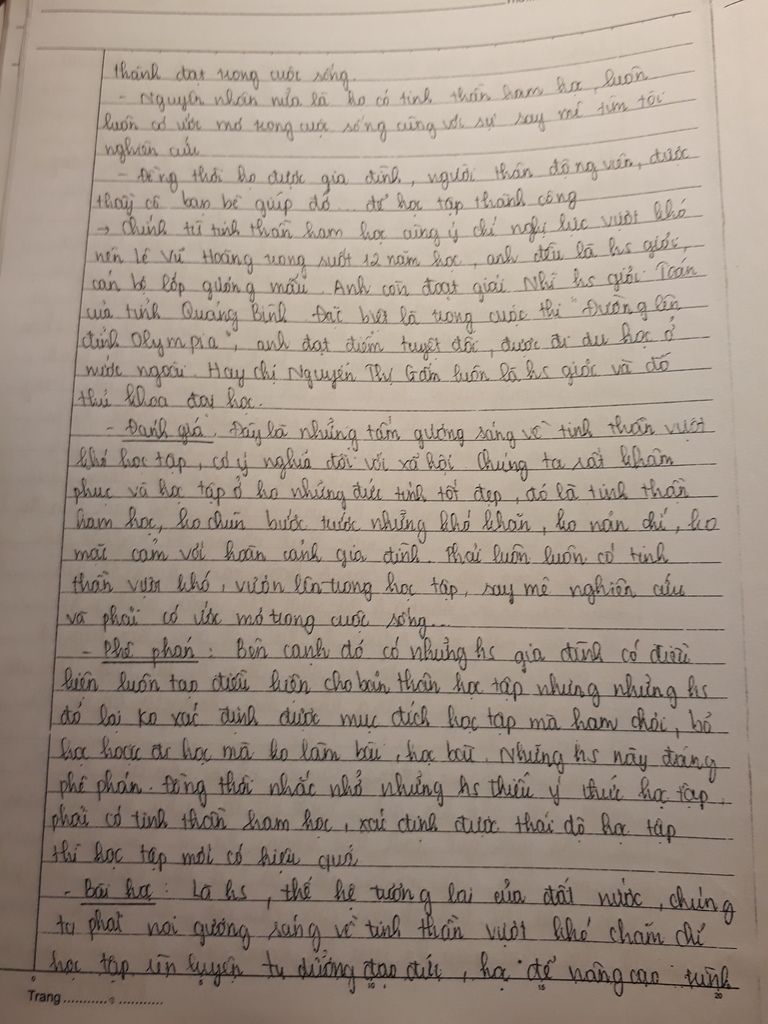 thành đạt trong cuộc sống.
- Nguyên nhân nữa là họ có tinh thần ham học, luôn
luôn có ước mơ trong cuộc sống cùng với sự say mê tìm tòi
nghiên cứu
- Đồng thời họ được gia đình, người thân động viên, được
thầy cô bạn bè giúp đỡ... để học tập thành công
→ Chính từ tinh thần ham học cùng ý chí nghị lực vượt khó
nên Lê Vũ Hoàng trong suốt 12 năm học, anh đều là hs giỏi,
cán bộ lớp gương mẫu. Anh còn đoạt giải Nhì hs giỏi Toán
của tỉnh Quảng Bình. Đặc biệt là trong cuộc thi "Đường lên
đỉnh Olympia", anh đạt điểm tuyệt đối, được đi du học ở
nước ngoài. Hay chị Nguyễn Thị Gấm luôn là hs giỏi và đỗ
thủ khoa đại học.
- Đánh giá. Đây là những tấm gương sáng về tinh thần vượt
khó học tập, có ý nghĩa đối với xã hội. Chúng ta rất khâm
phục và học tập ở họ những đức tính tốt đẹp, đó là tinh thần
ham học, ko chùn bước trước những khó khăn, ko nản chí, ko
mặc cảm với hoàn cảnh gia đình. Phải luôn luôn có tinh
thần vượt khó, vươn lên trong học tập, say mê nghiên cứu
và phải có ước mơ trong cuộc sống...
- Phê phán: Bên cạnh đó có những hs gia đình có điều
kiện luôn tạo điều kiện cho bản thân học tập nhưng những hs
đó lại ko xác định được mục đích học tập mà ham chơi, bỏ
học hoặc đi học mà ko làm bài, học bài. Những hs này đáng
phê phán. Đồng thời nhắc nhở những hs thiếu ý thức học tập,
phải có tinh thần ham học, xác định được thái độ học tập
thì học tập mới có hiệu quả
- Bài học: Là hs, thế hệ tương lai của đất nước, chúng
ta phải noi gương sáng về tinh thần vượt khó chăm chỉ
học tập rèn luyện tu dưỡng đạo đức, học để nâng cao trình
Trang
10 15 20